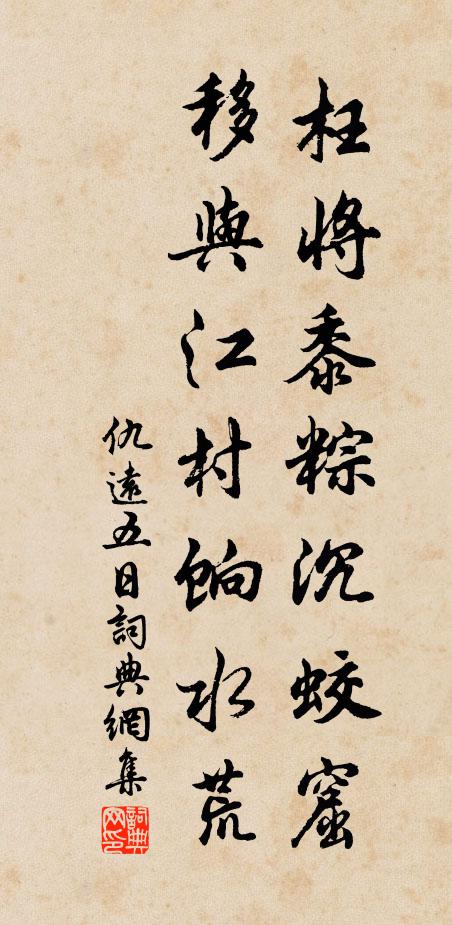 枉將黍粽沉蛟窟
移與江村餉水荒
仇遠五日詞典網集
詞典网印